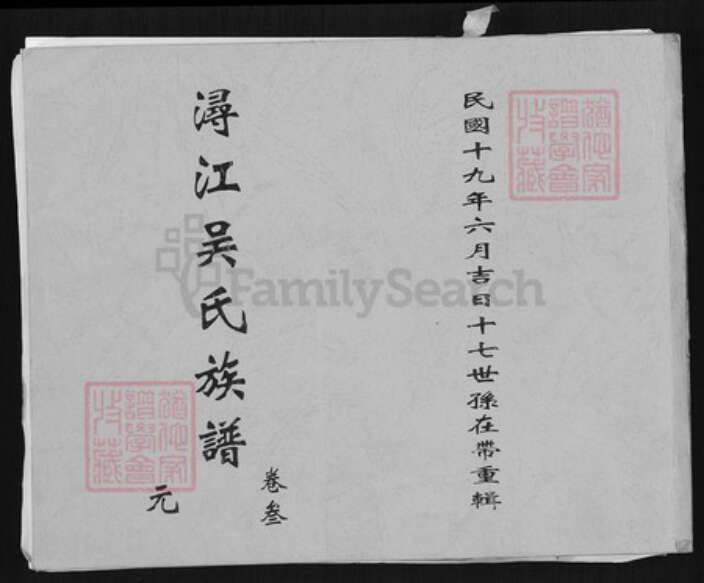 民國十九年六月吉日十七世孫在帶重輯
潯江吳氏族譜
卷叁
元
猶他家譜學會收藏
猶他家譜學會收藏
FamilySearch